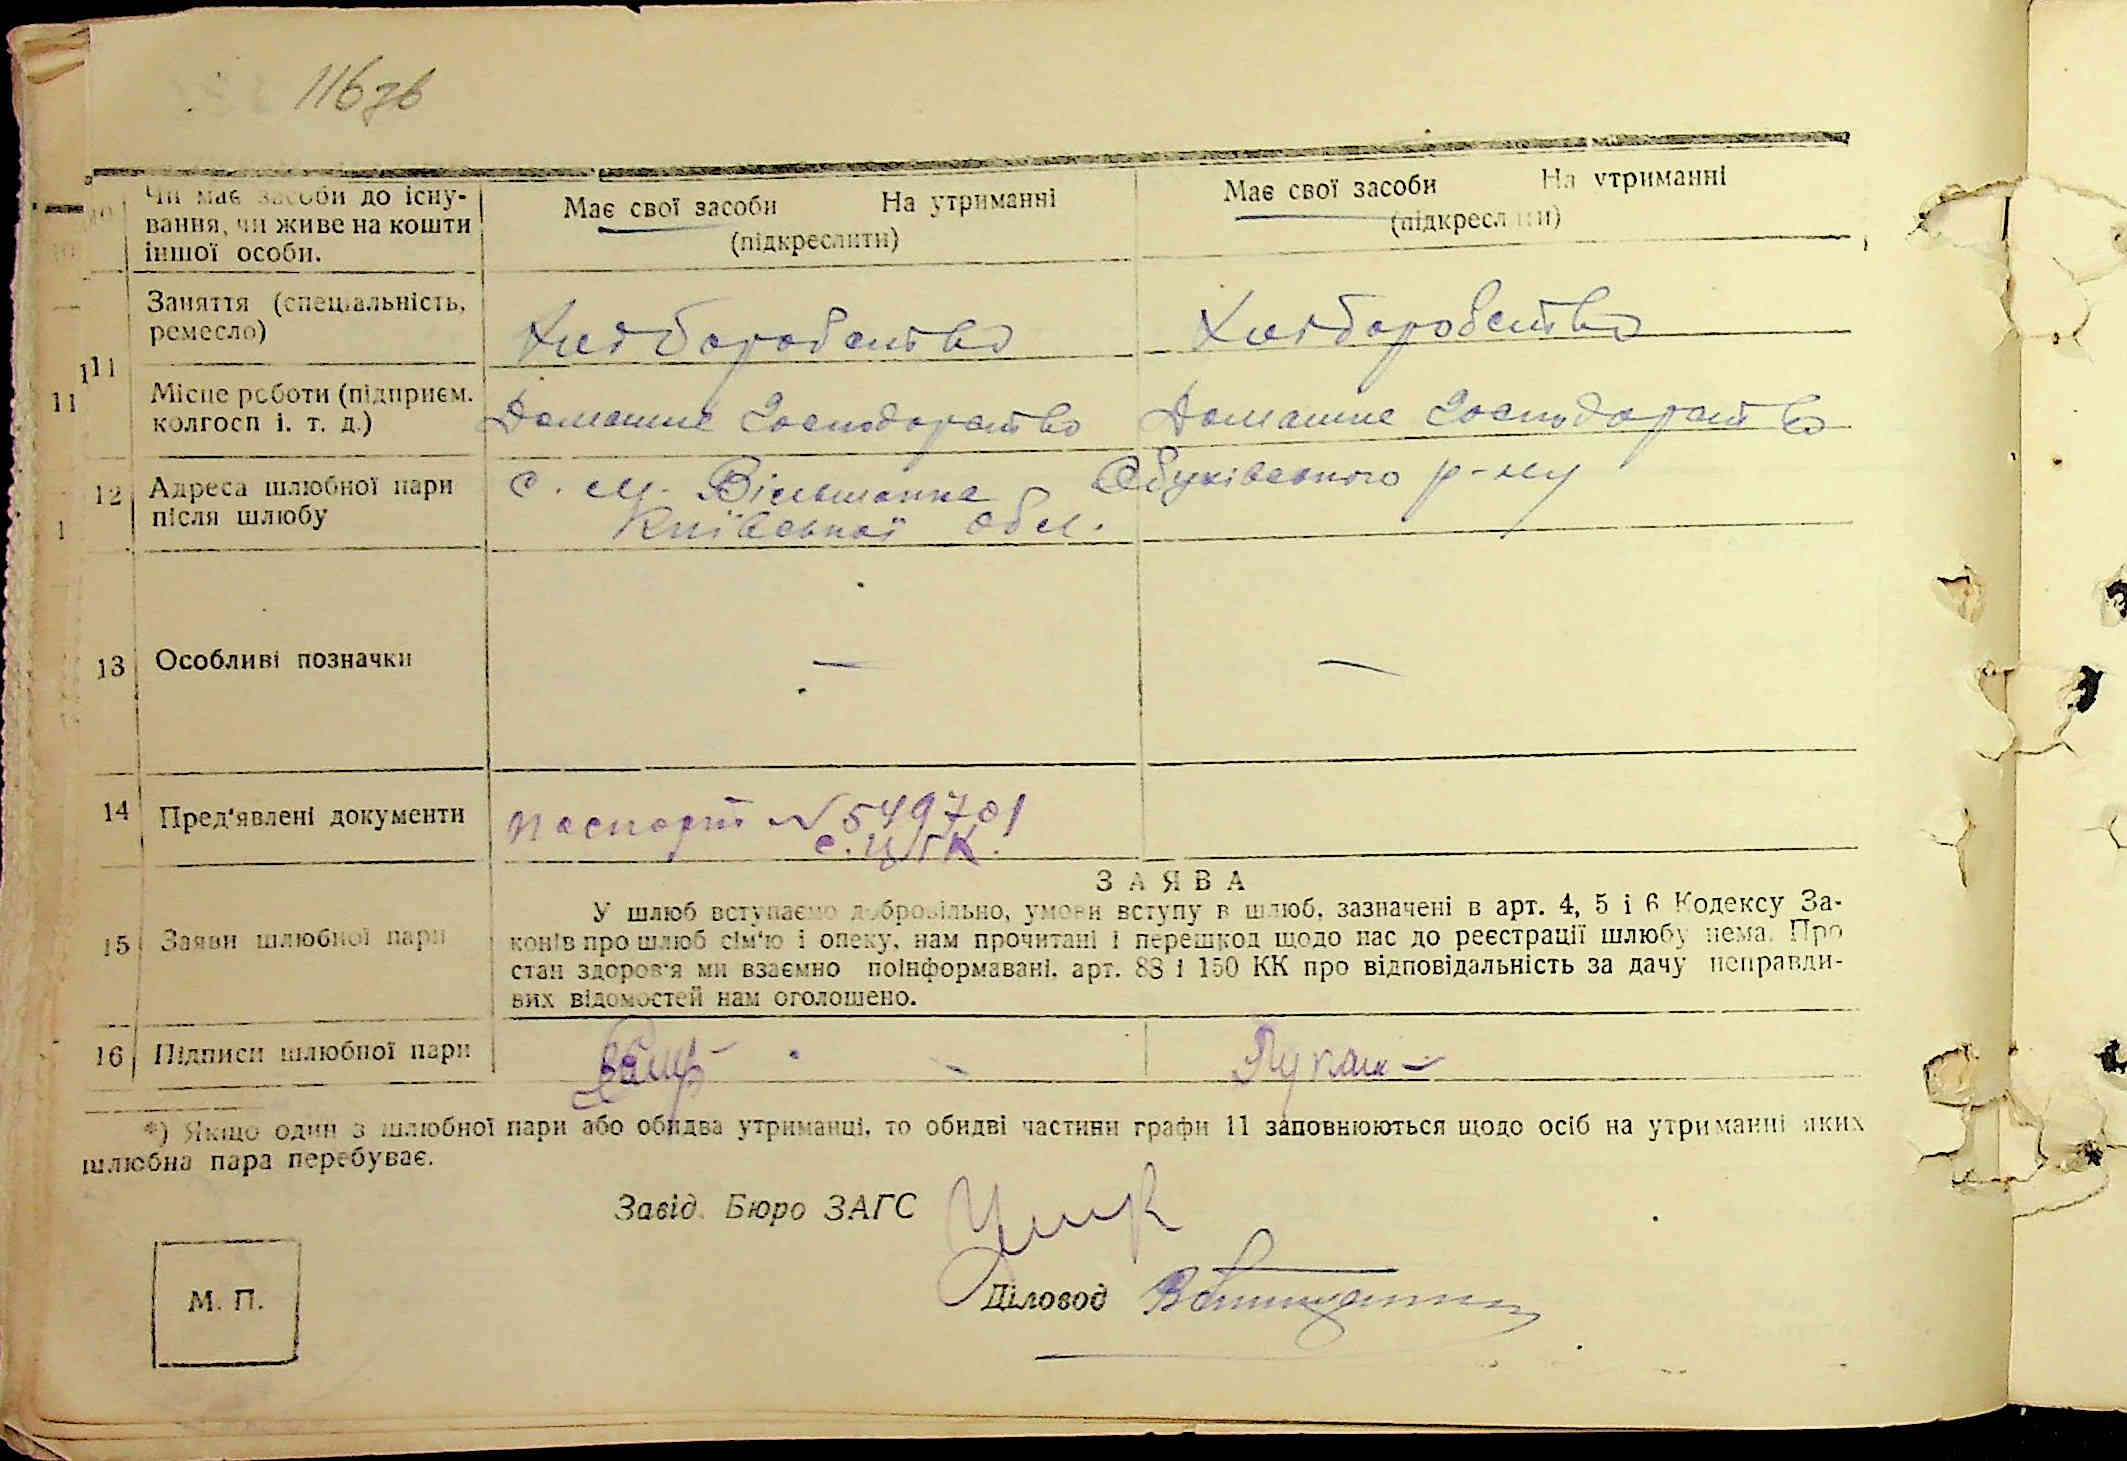 116зв
Чи має засоби до існу-
вання, чи живе на кошти
іншої особи.
Має свої засоби На утриманні
(підкреслити)
Має свої засоби На утриманні
(підкреслити)
11
Заняття (спеціальність,
ремесло)
Хліборобство
Хліборобство
Місце роботи (підприєм.
колгосп і. т. д.)
Домашнє Господарство
Домашнє Господарство
12
Адреса шлюбної пари
після шлюбу
с. м. Вільшанка Обухівського р-ну
Київської обл.
13 Особливі позначки
—
—
14 Пред'явлені документи
Паспорт № 549701
15 Заяви шлюбної пари
ЗАЯВА
У шлюб вступаємо добровільно, умови вступу в шлюб, зазначені в арт. 4, 5 і 6 Кодексу За-
конів про шлюб сім'ю і опеку, нам прочитані і перешкод щодо нас до реєстрації шлюбу нема. Про
стан здоров'я ми взаємно поінформавані, арт. 88 і 150 КК про відповідальність за дачу неправди-
вих відомостей нам оголошено.
16 Підписи шлюбної пари
*) Якщо один з шлюбної пари або обидва утриманці, то обидві частини графи 11 заповнюються щодо осіб на утриманні яких
шлюбна пара перебуває.
Завід. Бюро ЗАГС
Діловод
М. П.